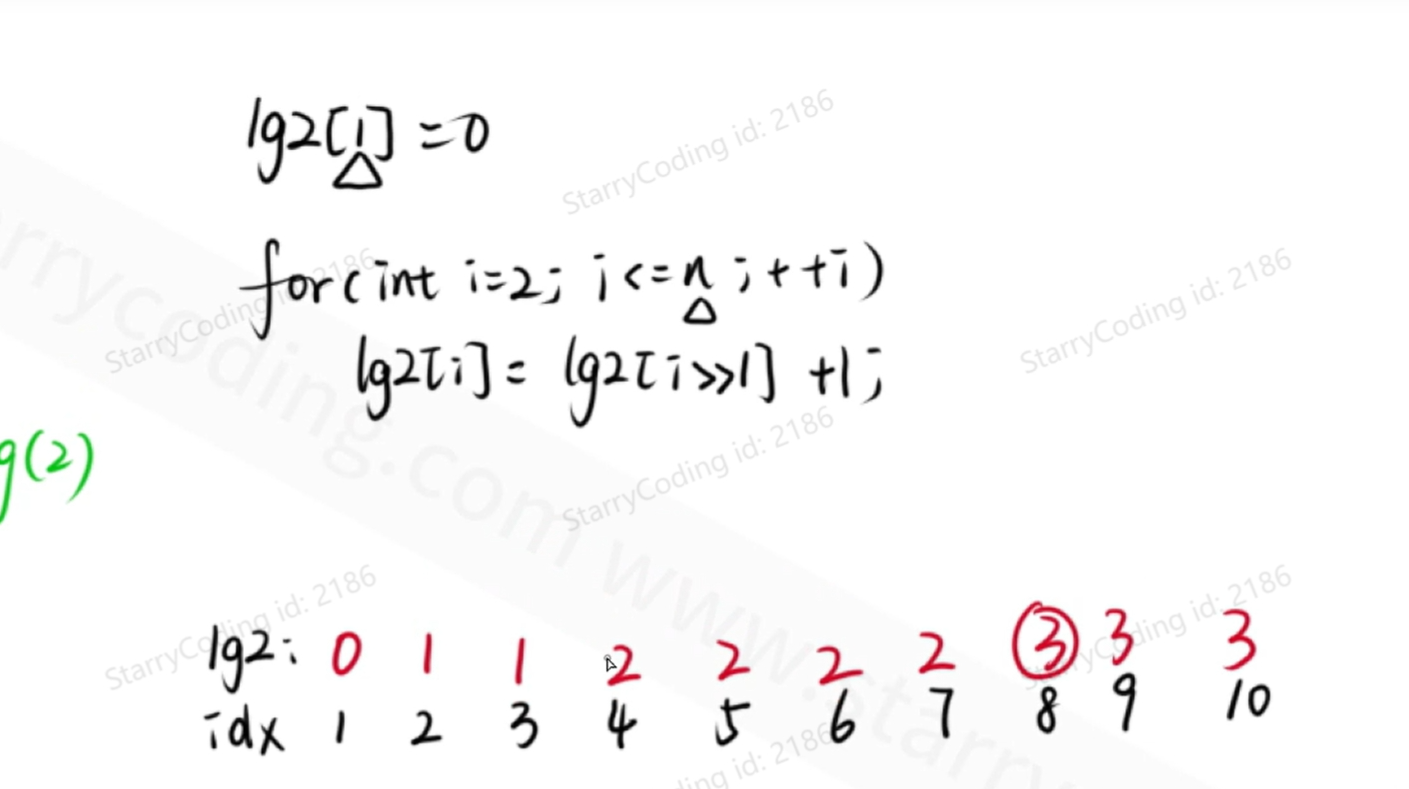 lg2[1]=0
for(int i=2; i<=n; ++i)
lg2[i]= lg2[i>>1] +1;
g(2)
lg2: 0 1 1 2 2 2 2 3 3 3
idx 1 2 3 4 5 6 7 8 9 10
StarryCoding id: 2186
StarryCoding id: 2186
StarryCoding id: 2186
StarryCoding id: 2186
StarryCoding id: 2186
StarryCoding id: 2186
ing id: 2186
arrycoding.com www.starry